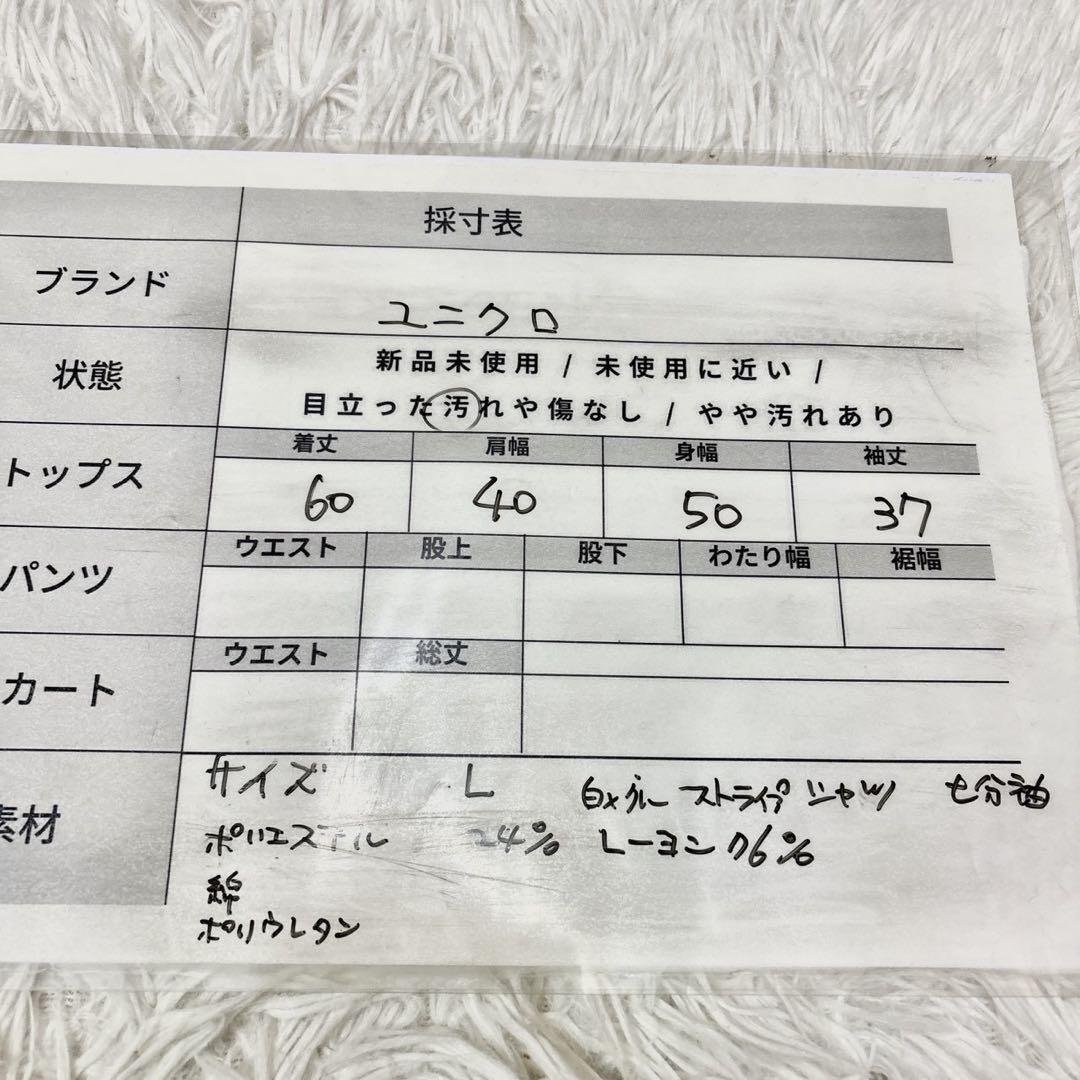 採寸表
ブランド ユニクロ
状態 新品未使用 / 未使用に近い /
目立った汚れや傷なし / やや汚れあり
トップス 着丈 肩幅 身幅 袖丈
60 40 50 37
パンツ ウエスト 股上 股下 わたり幅 裾幅
カート ウエスト 総丈
素材 サイズ L 白×ブルー ストライプ シャツ 七分袖
ポリエステル 24% レーヨン 76%
綿
ポリウレタン